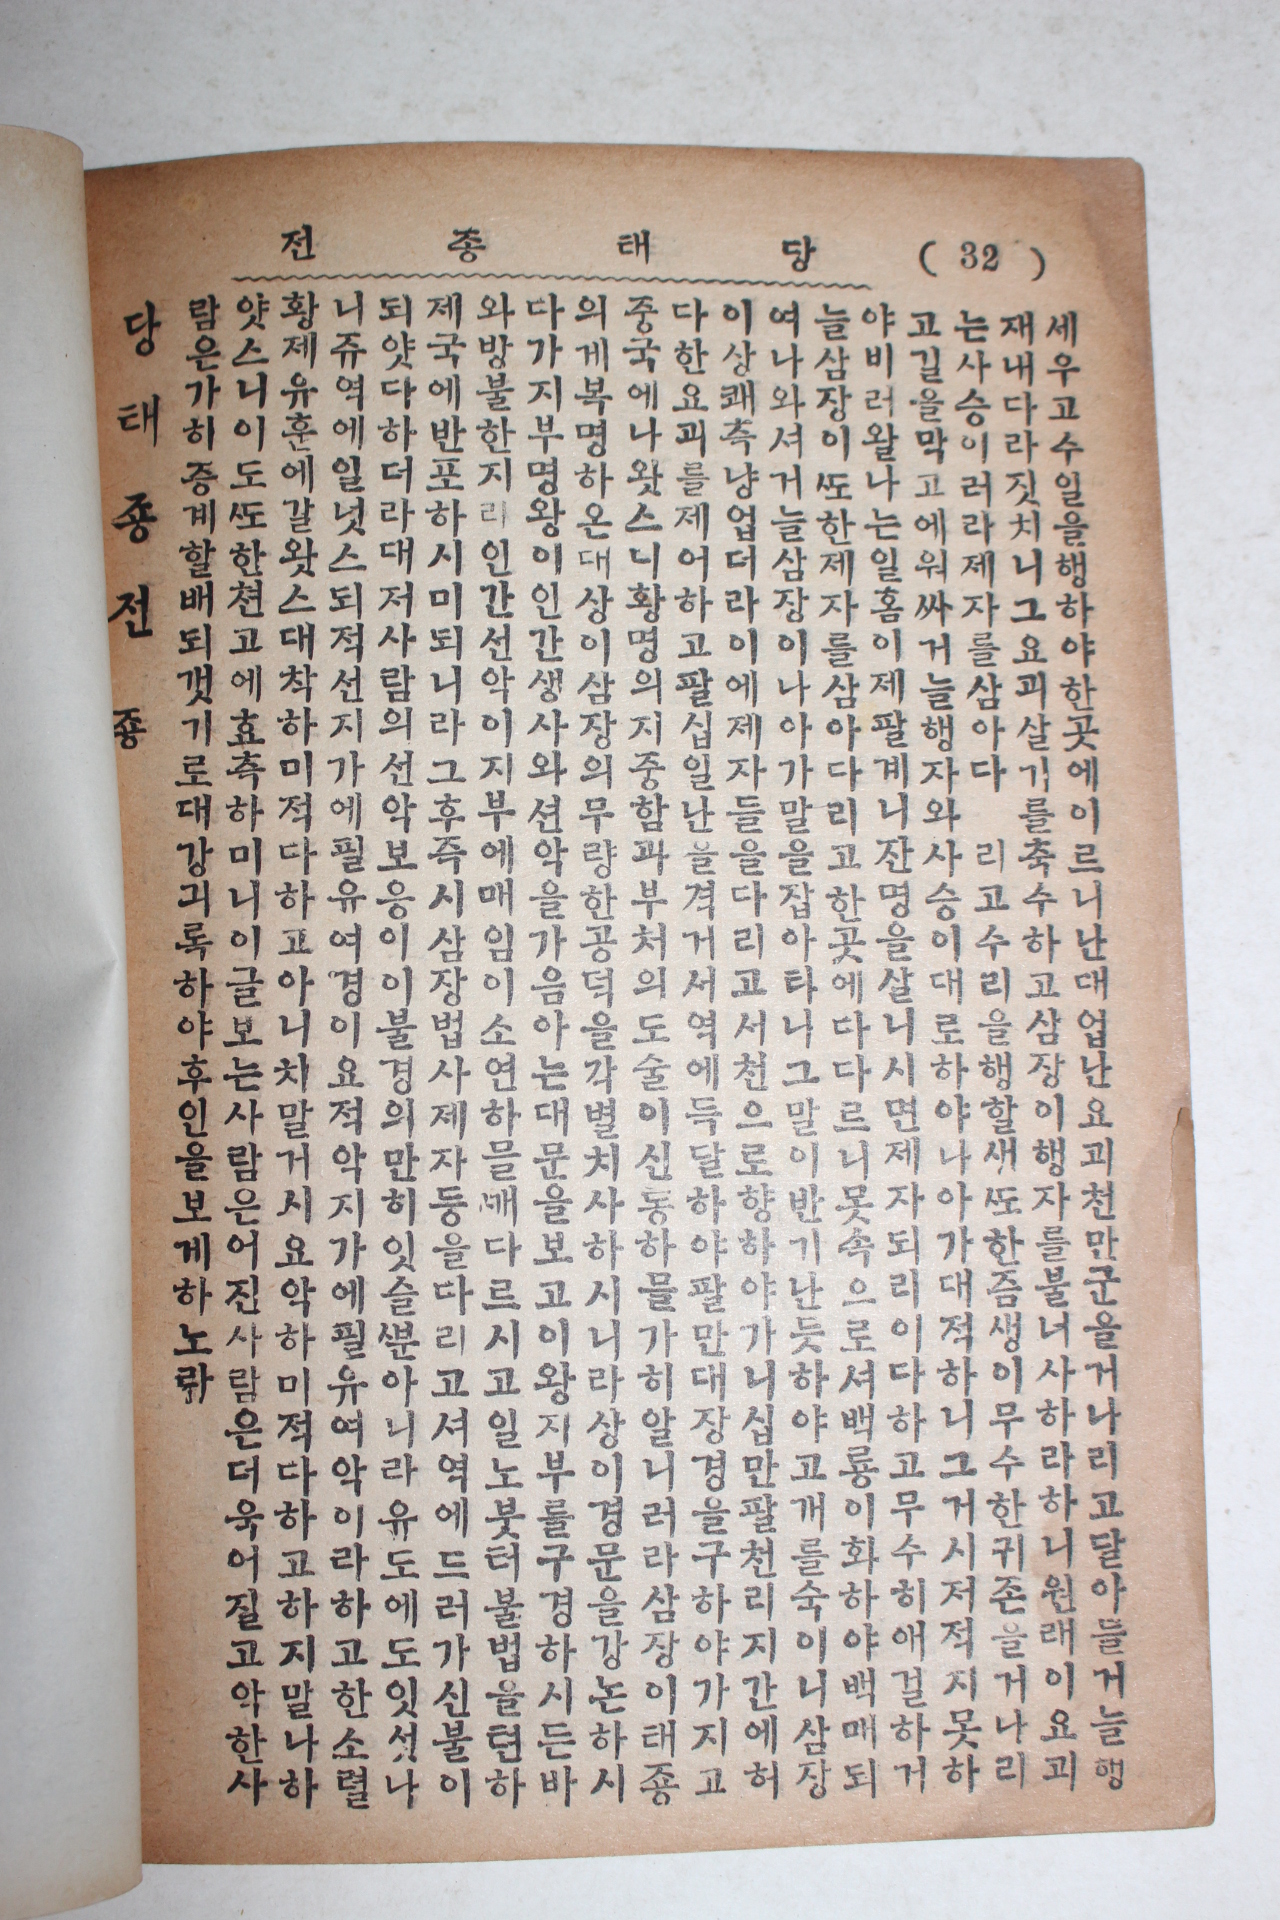 ( 32 ) 당태종전
세우고수일을행하야한곳에이르니난대업난요괴천만군을거나리고달아들거늘행
재내다라짓치니그요괴살기를축수하고삼장이행자를불너사하라하니원래이요괴
는사승이러라제자를삼아다 리고수리을행할새또한즘생이무수한귀존을거나리
고길을막고에워싸거늘행자와사승이대로하야나아가대적하니그거시저적지못하
야비러왈나는일홈이제팔계니잔명을살니시면제자되리이다하고무수히애걸하거
늘삼장이또한제자를삼아다리고한곳에다다르니못속으로셔백룡이화하야백매되
여나와셔거늘삼장이나아가말을잡아타니그말이반기난듯하야고개를숙이니삼장
이상쾌측냥업더라이에제자들을다리고서천으로향하야가니십만팔천리지간에허
다한요괴를제어하고팔십일난을격거서역에득달하야팔만대장경을구하야가지고
중국에나왓스니황명의지중함과부처의도술이신동하믈가히알니러라삼장이태죵
의게복명하온대상이삼장의무량한공덕을각별치사하시니라상이경문을강논하시
다가지부명왕이인간생사와션악을가음아는대문을보고이왕지부를구경하시든바
와방불한지라인간선악이지부에매임이소연하믈깨다르시고일노붓터불법을텬하
제국에반포하시미되니라그후즉시삼장법사제자등을다리고셔역에드러가신불이
되얏다하더라대저사람의선악보응이이불경의만히잇슬뿐아니라유도에도잇섯나
니쥬역에일넛스되적선지가에필유여경이요적악지가에필유여악이라하고한소렬
황제유훈에갈왓스대착하미적다하고아니치말거시요악하미적다하고하지말나하
얏스니이도또한쳔고에효측하미니이글보는사람은어진사람은더욱어질고악한사
람은가히증계할배되겟기로대강긔록하야후인을보게하노라
당태죵전 죵